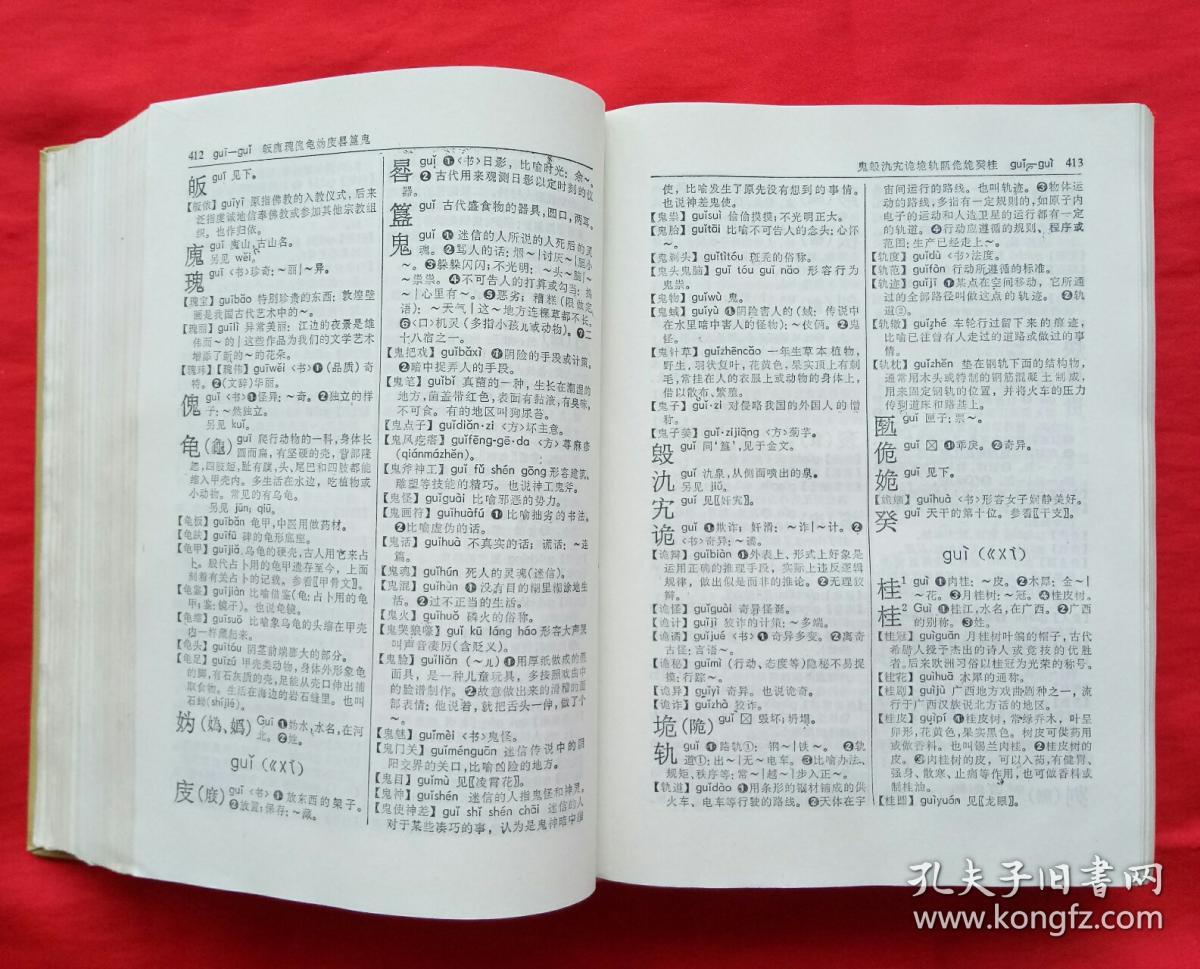 412 guī—guǐ 皈廆瑰傀龟妫庋晷簋鬼
皈 guī 见下。
【皈依】guīyī 原指佛教的入教仪式，后来
泛指虔诚地信奉佛教或参加其他宗教组
织。也作归依。
廆 guī 廆山，古山名。
另见 wěi。
瑰 guī〈书〉珍奇：～丽｜～异。
【瑰宝】guībǎo 特别珍贵的东西：敦煌壁
画是我国古代艺术中的～。
【瑰丽】guīlì 异常美丽：江边的夜景是雄
伟而～的｜这些作品为我们的文学艺术
增添了新的～的花朵。
【瑰玮】【瑰伟】guīwěi〈书〉❶（品质）奇
特。❷（文辞）华丽。
傀 guī〈书〉❶怪异：～奇。❷独立的样
子：～然独立。
另见 kuǐ。
龟（龜） guī 爬行动物的一科，身体长
圆而扁，有坚硬的壳，背部隆
起，四肢短，趾有蹼，头、尾巴和四肢都能
缩入甲壳内。多生活在水边，吃植物或
小动物。常见的有乌龟。
另见 jūn；qiū。
【龟板】guībǎn 龟甲，中医用做药材。
【龟趺】guīfū 碑的龟形底座。
【龟甲】guījiǎ 乌龟的硬壳，古人用它来占
卜。殷代占卜用的龟甲遗存至今，上面
刻着有关占卜的记载。参看〖甲骨文〗。
【龟鉴】guījiàn 比喻借鉴（龟：占卜用的龟
甲；鉴：镜子）。也说龟镜。
【龟缩】guīsuō 比喻象乌龟的头缩在甲壳
内一样藏起来。
【龟头】guītóu 阴茎前端膨大的部分。
【龟足】guīzú 甲壳类动物，身体外形象龟
的脚，有石灰质的壳，足能从壳口伸出捕
取食物。生活在海边的岩石缝里。也叫
石蜐（shíjié）。
妫（媯、嬀） Guī ❶妫水，水名，在河
北。❷姓。
guǐ（ㄍㄨㄟˇ）
庋（庪） guǐ〈书〉❶放东西的架子。
❷放置；保存：～藏。
晷 guǐ ❶〈书〉日影，比喻时光：余～。
❷古代用来观测日影以定时刻的仪
器。
簋 guǐ 古代盛食物的器具，圆口，两耳。
鬼 guǐ ❶迷信的人所说的人死后的灵
魂。❷骂人的话：烟～｜讨厌～｜胆小
～。❸躲躲闪闪；不光明：～头～脑｜～
～祟祟。❹不可告人的打算或勾当：捣
～｜心里有～。❺恶劣；糟糕（限做定
语）：～天气｜这～地方连棵草都不长。
❻〈口〉机灵（多指小孩儿或动物）。❼二
十八宿之一。
【鬼把戏】guǐbǎxì ❶阴险的手段或计策。
❷暗中捉弄人的手段。
【鬼笔】guǐbǐ 真菌的一种，生长在潮湿的
地方，菌盖带红色，表面有黏液，有臭味，
不可食。有的地区叫狗尿苔。
【鬼点子】guǐdiǎn·zi〈方〉坏主意。
【鬼风疙瘩】guǐfēng-gē·da〈方〉荨麻疹
（qiánmázhěn）。
【鬼斧神工】guǐ fǔ shén gōng 形容建筑、
雕塑等技能的精巧。也说神工鬼斧。
【鬼怪】guǐguài 比喻邪恶的势力。
【鬼画符】guǐhuàfú ❶比喻拙劣的书法。
❷比喻虚伪的话。
【鬼话】guǐhuà 不真实的话；谎话：～连
篇。
【鬼魂】guǐhún 死人的灵魂（迷信）。
【鬼混】guǐhùn ❶没有目的糊里糊涂地生
活。❷过不正当的生活。
【鬼火】guǐhuǒ 磷火的俗称。
【鬼哭狼嚎】guǐ kū láng háo 形容大声哭
叫声音凄厉（含贬义）。
【鬼脸】guǐliǎn（～儿）❶用厚纸做成的假
面具，是一种儿童玩具，多按照戏曲中
的脸谱制作。❷故意做出来的滑稽的面
部表情：他说着，就把舌头一伸，做了个
～。
【鬼魅】guǐmèi〈书〉鬼怪。
【鬼门关】guǐménguān 迷信传说中的阴
阳交界的关口，比喻凶险的地方。
【鬼目】guǐmù 见〖凌霄花〗。
【鬼神】guǐshén 迷信的人指鬼怪和神灵。
【鬼使神差】guǐ shǐ shén chāi 迷信的人
对于某些凑巧的事，认为是鬼神暗中
鬼毁氿宄诡垝轨匦佹姽癸桂 guǐ—guì 413
使，比喻发生了原先没有想到的事情。
也说神差鬼使。
【鬼祟】guǐsuì 偷偷摸摸；不光明正大。
【鬼胎】guǐtāi 比喻不可告人的念头：心怀
～。
【鬼剃头】guǐtìtóu 斑秃的俗称。
【鬼头鬼脑】guǐ tóu guǐ nǎo 形容行为
鬼祟。
【鬼物】guǐwù 鬼。
【鬼蜮】guǐyù ❶阴险害人的（蜮：传说中
在水里暗中害人的怪物）：～伎俩。❷鬼
怪。
【鬼针草】guǐzhēncǎo 一年生草本植物，
野生，羽状复叶，花黄色，果实顶上有刺
毛，常挂在人的衣服上或动物的身体上，
借以散布、繁殖。
【鬼子】guǐ·zi 对侵略我国的外国人的憎
称。
【鬼子姜】guǐ·zijiāng〈方〉菊芋。
guǐ 同‘簋’，见于金文。
氿 guǐ 氿泉，从侧面喷出的泉。
另见 jiǔ。
宄 guǐ 见〖奸宄〗。
诡 guǐ ❶欺诈；奸滑：～诈｜～计。❷
〈书〉奇异：～谲。
【诡辩】guǐbiàn ❶外表上、形式上好象是
运用正确的推理手段，实际上违反逻辑
规律，做出似是而非的推论。❷无理狡
辩。
【诡怪】guǐguài 奇异怪诞。
【诡计】guǐjì 狡诈的计策：～多端。
【诡谲】guǐjué〈书〉❶奇异多变。❷离奇
古怪：言语～。
【诡秘】guǐmì（行动、态度等）隐秘不易捉
摸：行踪～。
【诡异】guǐyì 奇异。也说诡奇。
【诡诈】guǐzhà 狡诈。
垝（陒） guǐ 〖文〗毁坏；坍塌。
轨 guǐ ❶路轨①：钢～｜铁～。❷轨
道①：出～｜无～电车。❸比喻办法、
规矩、秩序等：常～｜越～｜步入正～。
【轨道】guǐdào ❶用条形的钢材铺成的供
火车、电车等行驶的路线。❷天体在宇
宙间运行的路线。也叫轨迹。❸物体运
动的路线，多指有一定规则的，如原子内
电子的运动和人造卫星的运行都有一定
的轨道。❹行动应遵循的规则、程序或
范围：生产已经走上～。
【轨度】guǐdù〈书〉法度。
【轨范】guǐfàn 行动所遵循的标准。
【轨迹】guǐjì ❶某点在空间移动，它所通
过的全部路径叫做这点的轨迹。❷轨
道②。
【轨辙】guǐzhé 车轮行过留下来的痕迹，
比喻已往曾有人走过的道路或做过的事
情。
【轨枕】guǐzhěn 垫在钢轨下面的结构物，
通常用木头或特制的钢筋混凝土制成，
用来固定钢轨的位置，并将火车的压力
传到道床和路基上。
匦 guǐ 匣子：票～。
佹 guǐ 〖文〗❶乖戾。❷奇异。
姽 guǐ 见下。
【姽婳】guǐhuà〈书〉形容女子娴静美好。
癸 guǐ 天干的第十位。参看〖干支〗。
guì（ㄍㄨㄟˋ）
桂¹ guì ❶肉桂：～皮。❷木犀：金～｜
～花。❸月桂树：～冠。❹桂皮树。
桂² Guì ❶桂江，水名，在广西。❷广西
的别称。❸姓。
【桂冠】guìguān 月桂树叶编的帽子，古代
希腊人授予杰出的诗人或竞技的优胜
者。后来欧洲习俗以桂冠为光荣的称号。
【桂花】guìhuā 木犀的通称。
【桂剧】guìjù 广西地方戏曲剧种之一，流
行于广西汉族说北方话的地区。
【桂皮】guìpí ❶桂皮树，常绿乔木，叶呈
卵形，花黄色，果实黑色。树皮可供药用
或做香料。也叫锡兰肉桂。❷桂皮树的
皮。❸肉桂树的皮，可以入药，有健胃、
强身、散寒、止痛等作用，也可做香料或
制桂油。
【桂圆】guìyuán 见〖龙眼〗。
孔夫子旧书网
www.kongfz.com